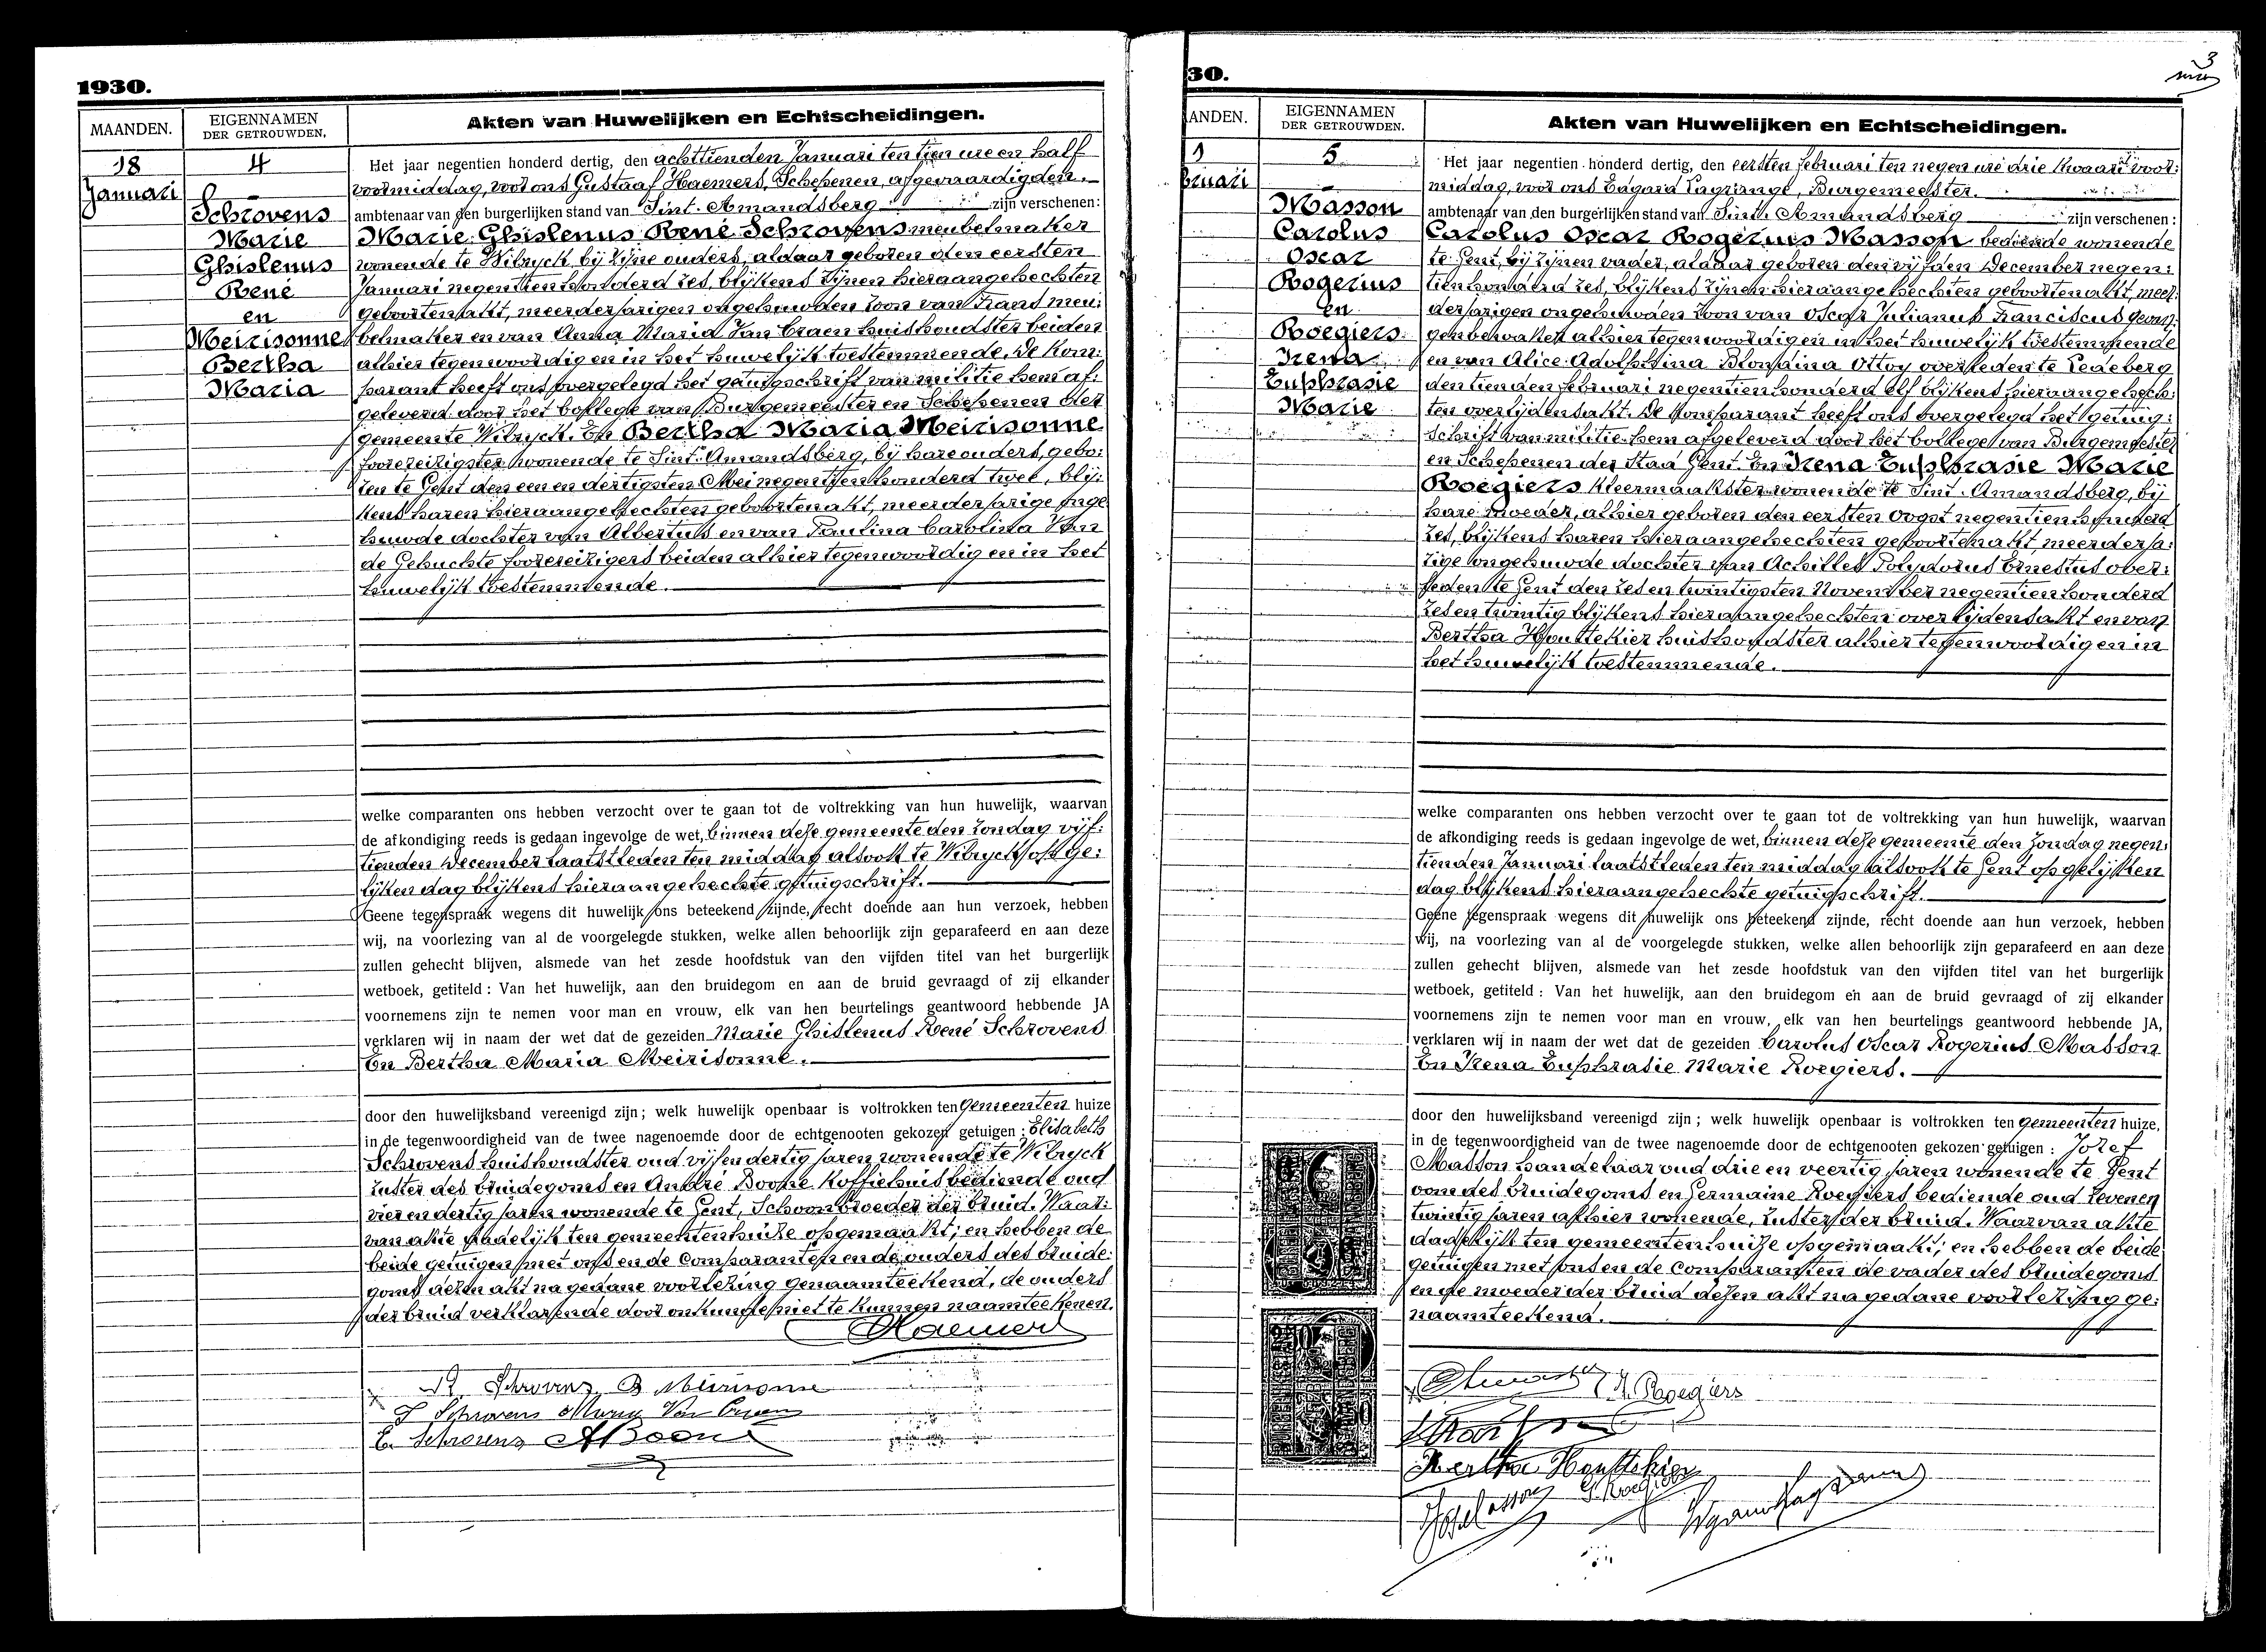 1930.
MAANDEN.
EIGENNAMEN
DER GETROUWDEN.
Akten van Huwelijken en Echtscheidingen.
18
Januari
4
Schrovens
Marie
Ghislenus
René
en
Meirisonne
Bertha
Maria
Het jaar negentien honderd dertig, den achttienden Januari ten tien ure en half
voormiddag, voor ons Gustaaf Haemers, Schepenen, afgevaardigden
ambtenaar van den burgerlijken stand van Sint. Amandsberg zijn verschenen:
Marie Ghislenus René Schrovens meubelmaker
wonende te Wilryck, bij zijne ouders, aldaar geboren den eersten
Januari negentien honderd zes, blijkens zijnen hieraangehechten
geboortenakt, meerderjarigen ongehuwden zoon van Frans meu:
belmaker en van Anna Maria Van Craen huishoudster beiden
alhier tegenwoordig en in het huwelijk toestemmende. De kom:
parant heeft ons overgelegd het getuigschrift van militie hem af:
geleverd door het Collegie van Burgemeester en Schepenen der
gemeente Wilryck. En Bertha Maria Meirisonne
foorereizigster wonende te Sint. Amandsberg, bij hare ouders, gebo:
ren te Gent den een en dertigsten Mei negentien honderd twee, blij:
kens haren hieraangehechten geboortenakt, meerderjarige onge
huwde dochter van Albertus en van Paulina Carolina Van
de Gehuchte foorereizigers beiden alhier tegenwoordig en in het
huwelijk toestemmende.
welke comparanten ons hebben verzocht over te gaan tot de voltrekking van hun huwelijk, waarvan
de afkondiging reeds is gedaan ingevolge de wet, binnen deze gemeente den zondag vijf:
tienden December laatstleden ten middag alsook te Wilryck op ge:
lijken dag blijkens hieraangehechte getuigschrift.
Geene tegenspraak wegens dit huwelijk ons beteekend zijnde, recht doende aan hun verzoek, hebben
wij, na voorlezing van al de voorgelegde stukken, welke allen behoorlijk zijn geparafeerd en aan deze
zullen gehecht blijven, alsmede van het zesde hoofdstuk van den vijfden titel van het burgerlijk
wetboek, getiteld : Van het huwelijk, aan den bruidegom en aan de bruid gevraagd of zij elkander
voornemens zijn te nemen voor man en vrouw, elk van hen beurtelings geantwoord hebbende JA
verklaren wij in naam der wet dat de gezeiden Marie Ghislenus René Schrovens
En Bertha Maria Meirisonne.
door den huwelijksband vereenigd zijn ; welk huwelijk openbaar is voltrokken ten gemeenten huize
in de tegenwoordigheid van de twee nagenoemde door de echtgenooten gekozen getuigen : Elisabeth
Schrovens huishoudster oud vijf en dertig jaren wonende te Wilryck
zuster des bruidegoms en André Boone koffiehuisbediende oud
vier en dertig jaren wonende te Gent, Schoonbroeder der bruid. Waar:
van akte dadelijk ten gemeentenhuize opgemaakt; en hebben de
beide getuigen met ons en de Comparanten en de ouders des bruide:
goms dezen akt na gedane voorlezing genaamteekend, de ouders
der bruid verklarende door onkunde niet te kunnen naamteekenen.
Haemers
R Schrovens B Meirisonne
F Schrovens Maria Van Craen
E. Schrovens A Boone
30.
3
ANDEN.
EIGENNAMEN
DER GETROUWDEN.
Akten van Huwelijken en Echtscheidingen.
1
bruari
5
Masson
Carolus
Oscar
Rogerius
en
Roegiers
Irena
Euphrasie
Marie
Het jaar negentien honderd dertig, den eersten februari ten negen ure drie kwaart voor:
middag, voor ons Edgard Lagrange, Burgemeester.
ambtenaar van den burgerlijken stand van Sint. Amandsberg zijn verschenen :
Carolus Oscar Rogerius Masson bediende wonende
te Gent, bij zijnen vader, aldaar geboren den vijfden December negen:
tien honderd zes, blijkens zijnen hieraangehechten geboortenakt, meer:
derjarigen ongehuwden zoon van Oscar Julianus Franciscus gevan:
genbewaker alhier tegenwoordig en in het huwelijk toestemmende
en van Alice Adolphina Blondina Ottoy overleden te Ledeberg
den tienden februari negentien honderd elf blijkens hieraangehech:
ten overlijdensakt. De komparant heeft ons overgelegd het getuig:
schrift van militie hem afgeleverd door het Collegie van Burgemeester
en Schepenen der Stad Gent. En Irena Euphrasie Marie
Roegiers kleermaakster wonende te Sint. Amandsberg, bij
hare moeder, alhier geboren den eersten Oogst negentien honderd
zes, blijkens haren hieraangehechten geboortenakt, meerderja:
rige ongehuwde dochter van Achilles Polydorus Ernestus over:
leden te Gent den zes en twintigsten November negentien honderd
zes en twintig blijkens hieraangehechten overlijdensakt en van
Bertha Houttekier huishoudster alhier tegenwoordig en in
het huwelijk toestemmende.
welke comparanten ons hebben verzocht over te gaan tot de voltrekking van hun huwelijk, waarvan
de afkondiging reeds is gedaan ingevolge de wet, binnen deze gemeente den zondag negen:
tienden Januari laatstleden ten middag alsook te Gent op gelijken
dag blijkens hieraangehechte getuigschrift.
Geene tegenspraak wegens dit huwelijk ons beteekend zijnde, recht doende aan hun verzoek, hebben
wij, na voorlezing van al de voorgelegde stukken, welke allen behoorlijk zijn geparafeerd en aan deze
zullen gehecht blijven, alsmede van het zesde hoofdstuk van den vijfden titel van het burgerlijk
wetboek, getiteld : Van het huwelijk, aan den bruidegom en aan de bruid gevraagd of zij elkander
voornemens zijn te nemen voor man en vrouw, elk van hen beurtelings geantwoord hebbende JA,
verklaren wij in naam der wet dat de gezeiden Carolus Oscar Rogerius Masson
En Irena Euphrasie Marie Roegiers.
door den huwelijksband vereenigd zijn ; welk huwelijk openbaar is voltrokken ten gemeenten huize,
in de tegenwoordigheid van de twee nagenoemde door de echtgenooten gekozen getuigen : Jozef
Masson handelaar oud drie en veertig jaren wonende te Gent
oom des bruidegoms en Germaine Roegiers bediende oud zeven en
twintig jaren alhier wonende, zuster der bruid. Waarvan akte
dadelijk ten gemeentenhuize opgemaakt; en hebben de beide
getuigen met ons en de Comparanten de vader des bruidegoms
en de moeder der bruid dezen akt na gedane voorlezing ge:
naamteekend.
Roegiers
Bertha Houttekier
G. Roegiers